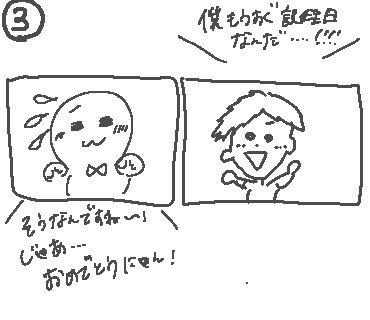 ③
僕もうすぐ誕生日
なんだ……!!!!
そうなんですねい!
じゃあ…
おめでとうにゃん!